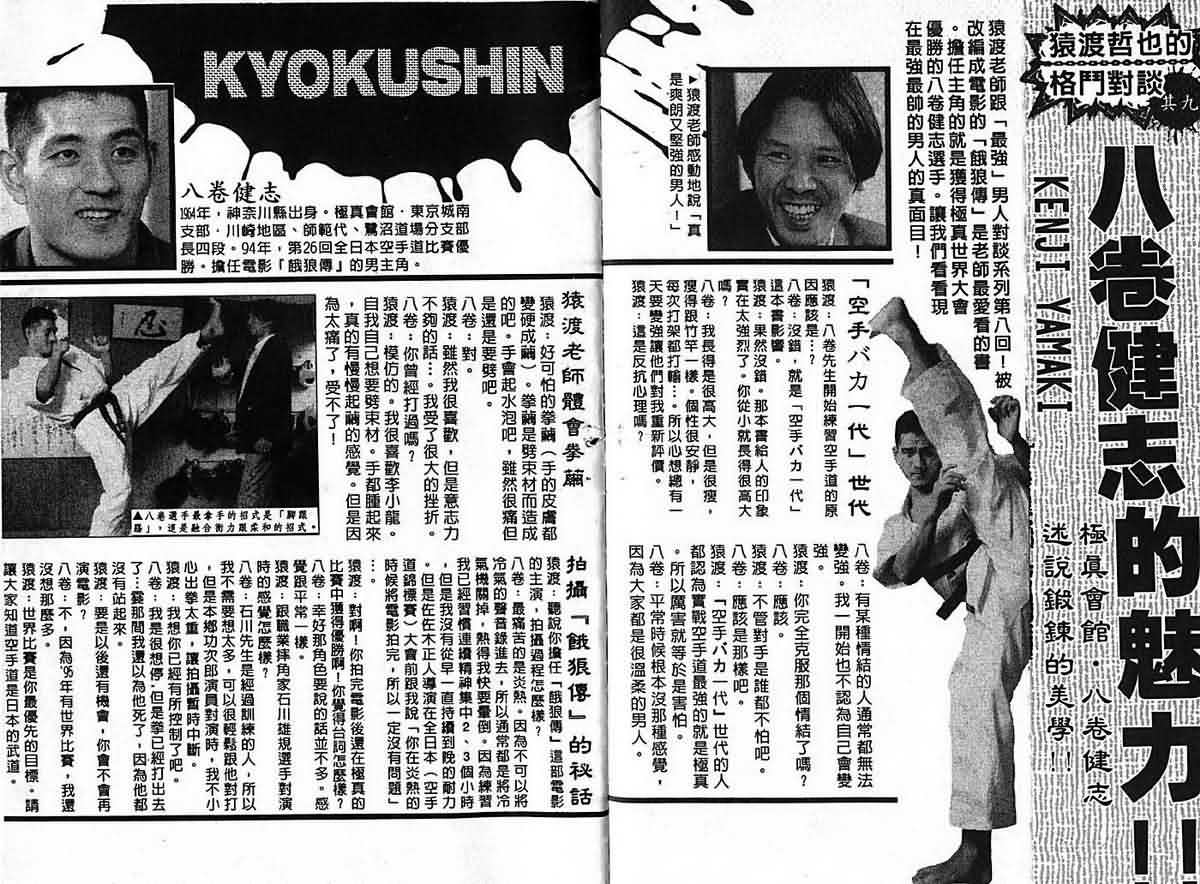 猿渡哲也的
格鬥對談
其九
八卷健志的魅力!!
KENJI YAMAKI
極真會館・八卷健志
述說鍛鍊的美學!!
猿渡老師跟「最強」男人對談系列第八回!被
改編成電影的「餓狼傳」是老師最愛看的書
。擔任主角的就是獲得極真世界大會
優勝的八卷健志選手。讓我們看看現
在最強最帥的男人的真面目!
▶猿渡老師感動地說「真
是爽朗又堅強的男人!」
「空手バカ一代」世代
猿渡:八卷先生開始練習空手道的原
因應該是…?
八卷:沒錯,就是「空手バカ一代」
這本書影響。
猿渡:果然沒錯。那本書給人的印象
實在太強烈了。你從小就長得很高大
嗎?
八卷:我長得是很高大,但是很瘦,
瘦得跟竹竿一樣。個性很安靜,
每次打架都打輸…。所以心想總有一
天要變強讓他們對我重新評價。
猿渡:這是反抗心理嗎?
八卷:有某種情結的人通常都無法
變強。我一開始也不認為自己會變
強。
猿渡:你完全克服那個情結了嗎?
八卷:應該。
猿渡:不管對手是誰都不怕吧。
八卷:應該是那樣吧。
猿渡:「空手バカ一代」世代的人
都認為實戰空手道最強的就是極真
。所以厲害就等於是害怕。
八卷:平常時候根本沒那種感覺,
因為大家都是很溫柔的男人。
KYOKUSHIN
八卷健志
1964年,神奈川縣出身。極真會館・東京城南
支部・川崎地區、師範代、驚沼道場分支部
長四段。94年,第26回全日本空手道比賽優
勝。擔任電影「餓狼傳」的男主角。
猿渡老師體會拳繭
猿渡:好可怕的拳繭(手的皮膚都
變硬成繭)。拳繭是劈束材而造成
的吧。手會起水泡吧,雖然很痛但
是還是要劈吧。
八卷:對。
猿渡:雖然我很喜歡,但是意志力
不夠的話…。我受了很大的挫折。
八卷:你曾經打過嗎?
猿渡:模仿的。我很喜歡李小龍。
自我自己想要劈束材。手都腫起來
,真的有慢慢起繭的感覺。但是因
為太痛了,受不了!
忍
▲八卷選手最拿手的招式是「腳跟
」,這是融合衝力跟柔和的招式。
拍攝「餓狼傳」的秘話
猿渡:聽說你擔任「餓狼傳」這部電影
的主演,拍攝過程怎麼樣?
八卷:最痛苦的是炎熱。因為不可以將
冷氣的聲音錄進去,所以通常都是將冷
氣機關掉,熱得我快要暈倒。因為練習
我已經習慣連續精神集中2、3個小時
。但是我沒有從早一直持續到晚的耐力
。但是在佐木正人導演在全日本(空手
道錦標賽)大會前跟我說「你在炎熱的
時候將電影拍完,所以一定沒有問題」
…。
猿渡:對啊!你拍完電影後還在極真的
比賽中獲得優勝啊!你覺得台詞怎麼樣?
八卷:幸好那角色要說的話並不多。感
覺跟平常一樣。
猿渡:跟職業摔角家石川雄規選手對演
時的感覺怎麼樣?
八卷:石川先生是經過訓練的人,所以
我不需要想太多,可以很輕鬆跟他對打
,但是本鄉功次郎演員對演時,我不小
心出拳太重,讓拍攝暫時中斷。
猿渡:我想你已經有所控制了吧。
八卷:我是很想停,但是拳已經打出去
了…霎那間我還以為他死了,因為他都
沒有站起來。
猿渡:要是以後還有機會,你會不會再
演電影?
八卷:不,因為'95年有世界比賽,我還
沒想那麼多。
猿渡:世界比賽是你最優先的目標。請
讓大家知道空手道是日本的武道。